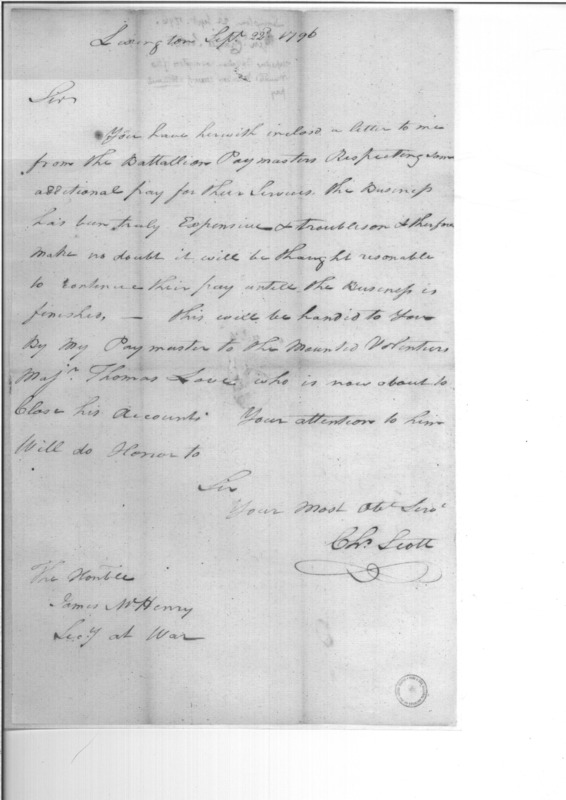 Lexington, Sept. 22d 1796
Sir
You have herewith inclosd a letter to me
from the Battallion Paymasters Respecting some
additional pay for their Services. the Business
has been truly Expensive & troubleson & therfore
make no doubt it will be thaught resonable
to Contenue their pay untill the Business is
finished, — this will be handid to You
By My Paymaster to the Mounted Volentiers
Majr. Thomas Love who is now about to
Close his Accounts Your attention to him
Will do Honor to
Sir
Your Most Obt. Servt
Chs. Scott
The Honble
James McHenry
Secy at War